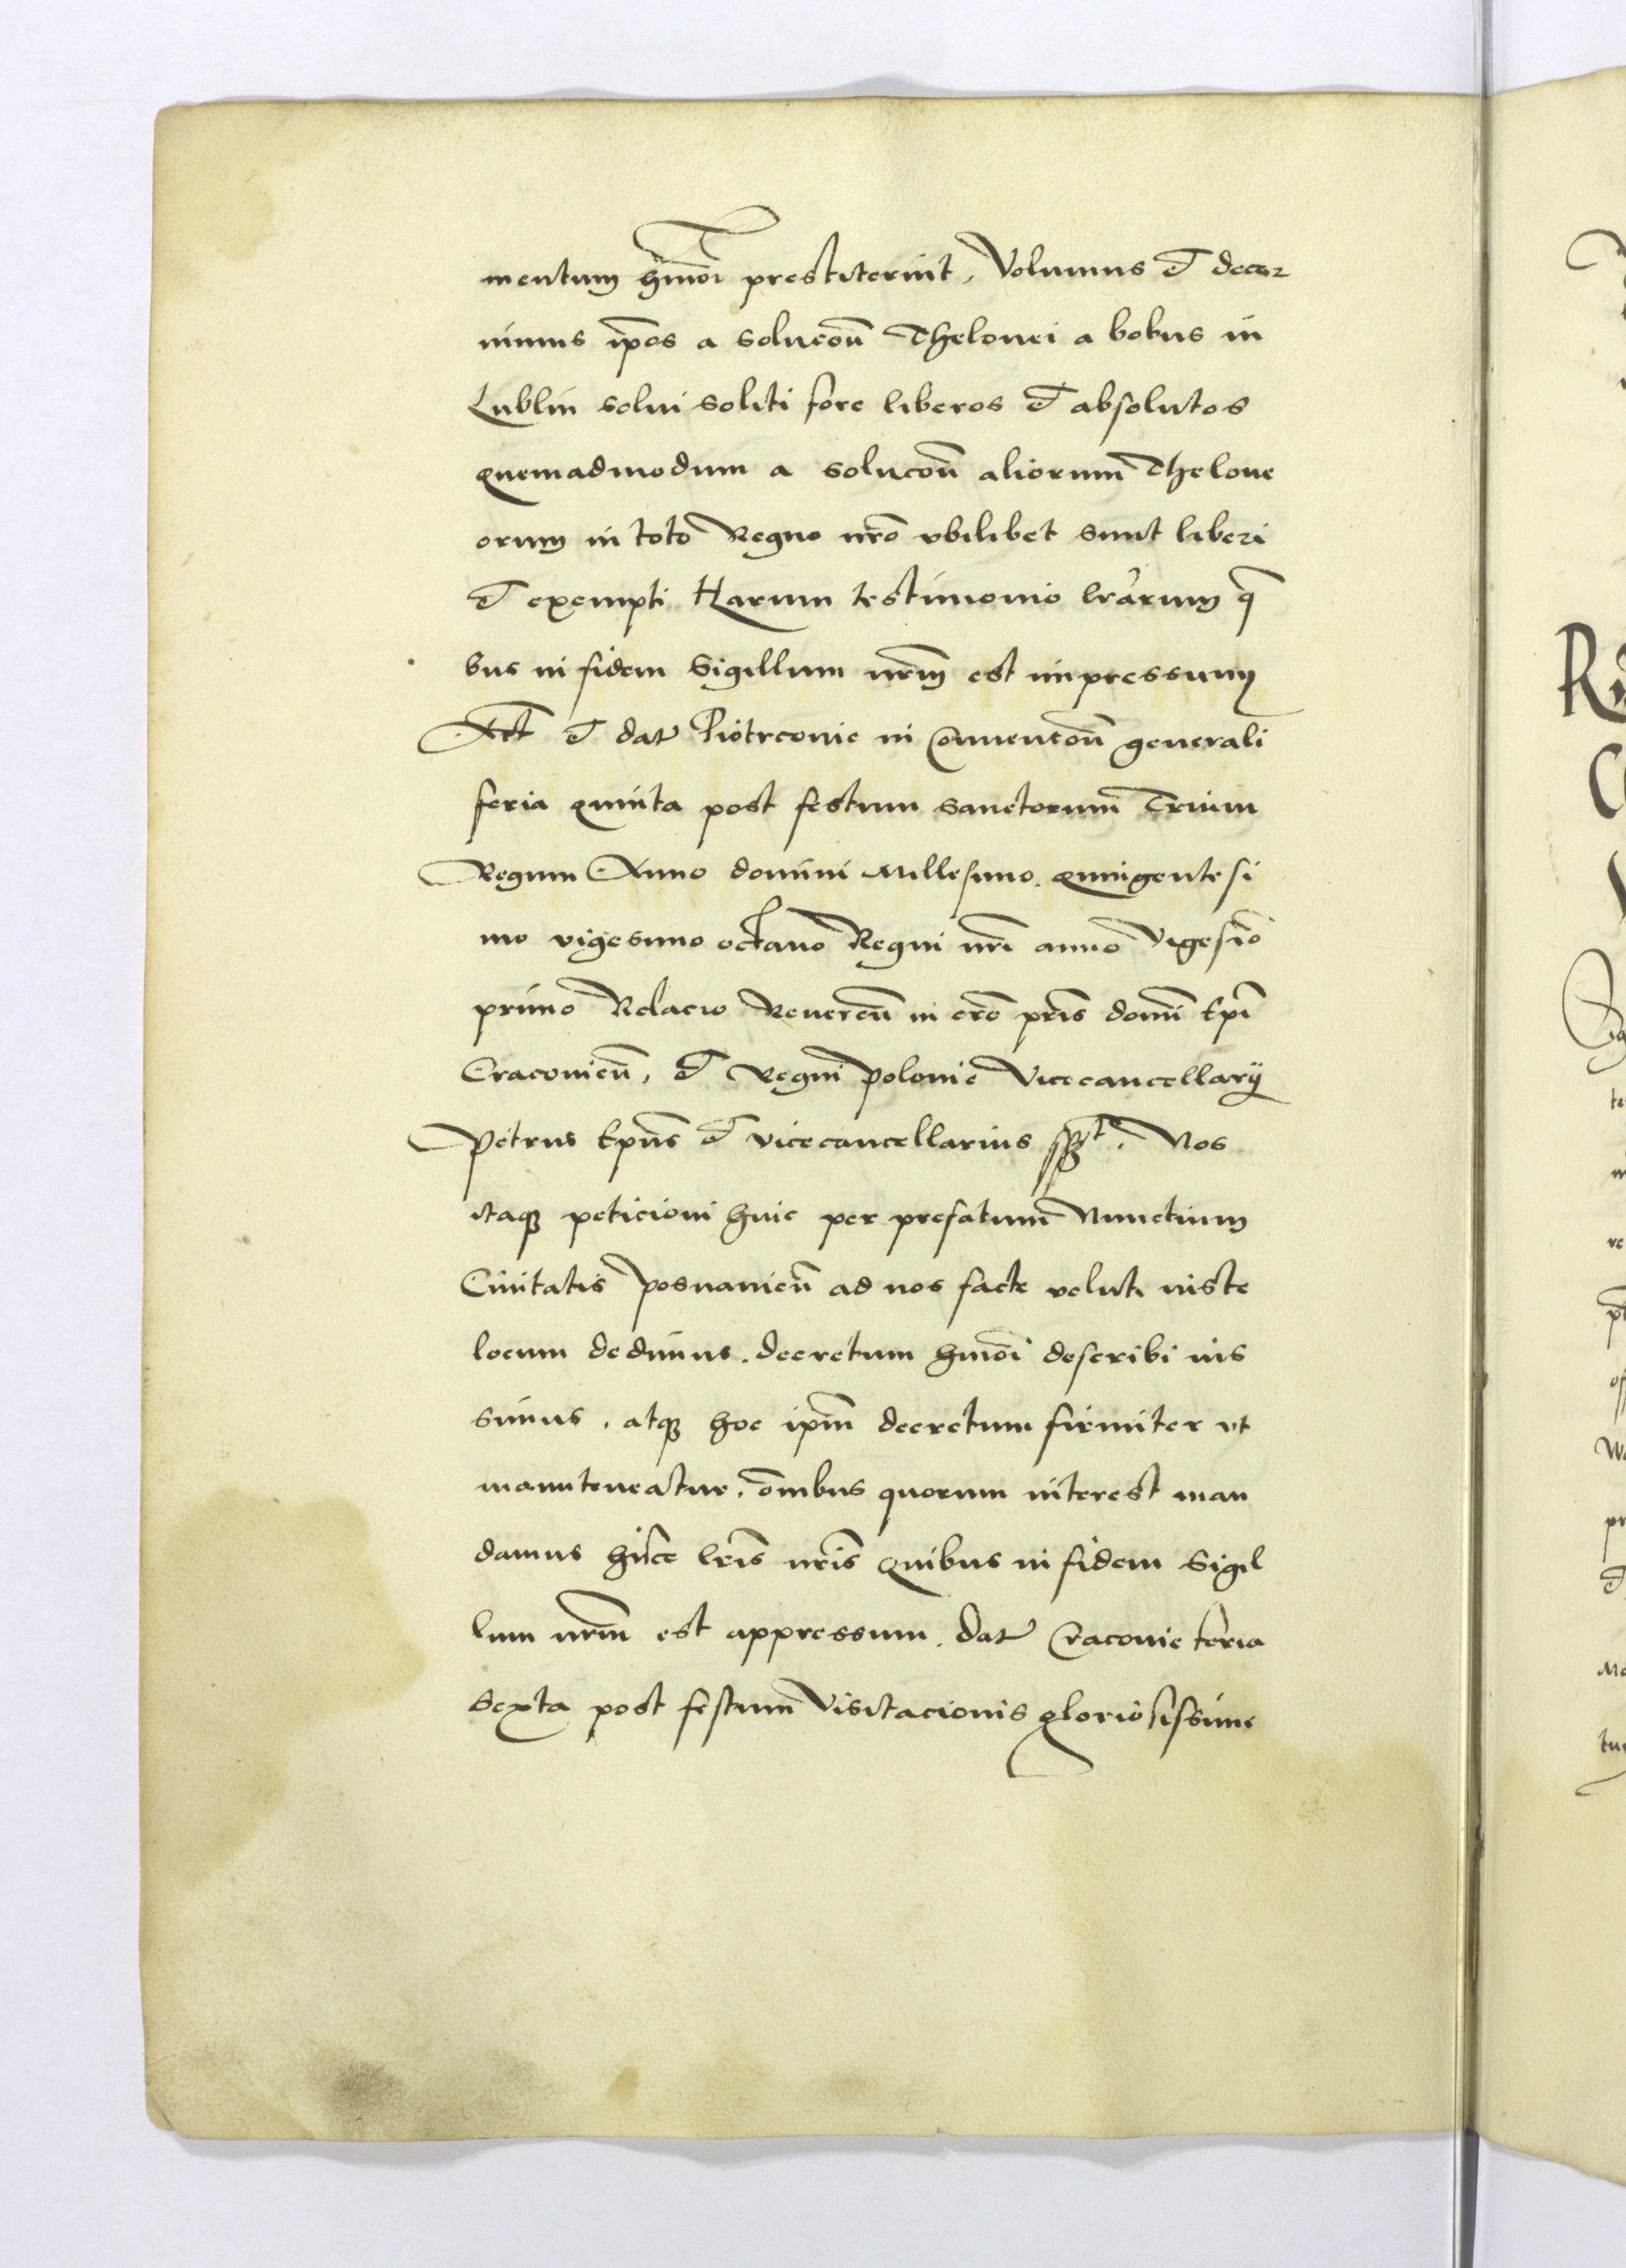 mentum hmoi prestiterint, Volumus et decer
nimus ipos a solucon Thelonei a bobus in
Lublin solui soliti fore liberos et absolutos
quemadmodum a solucon aliorum Thelone
orum in toto Regno nro vbilibet sunt liberi
et exempti Harum testimonio lrarum q
bus in fidem Sigillum nrm est impressum
Act et dat Piotrconie in Conuencon generali
feria quinta post festum sanctorum Trium
Regum Anno domini Millesimo quingentesi
mo vigesimo octauo Regni nri anno vigesio
primo Relacio Reueren in cro pris domi Epi
Cracouien, et Regni polonie Vicecancellarij
Petrus Epus et vicecancellarius sst. Nos
itaq peticioni huic per prefatum Nunctium
Ciuitatis posnanien ad nos facte veluti iuste
locum dedimus. decretum hmoi describi ius
simus, atq hoc ipm decretum firmiter vt
manuteneatur, omibus quorum interest man
damus hisce lris nris quibus in fidem Sigil
lum nrm est appressum. dat Cracouie feria
Sexta post festum Visitacionis gloriosissime